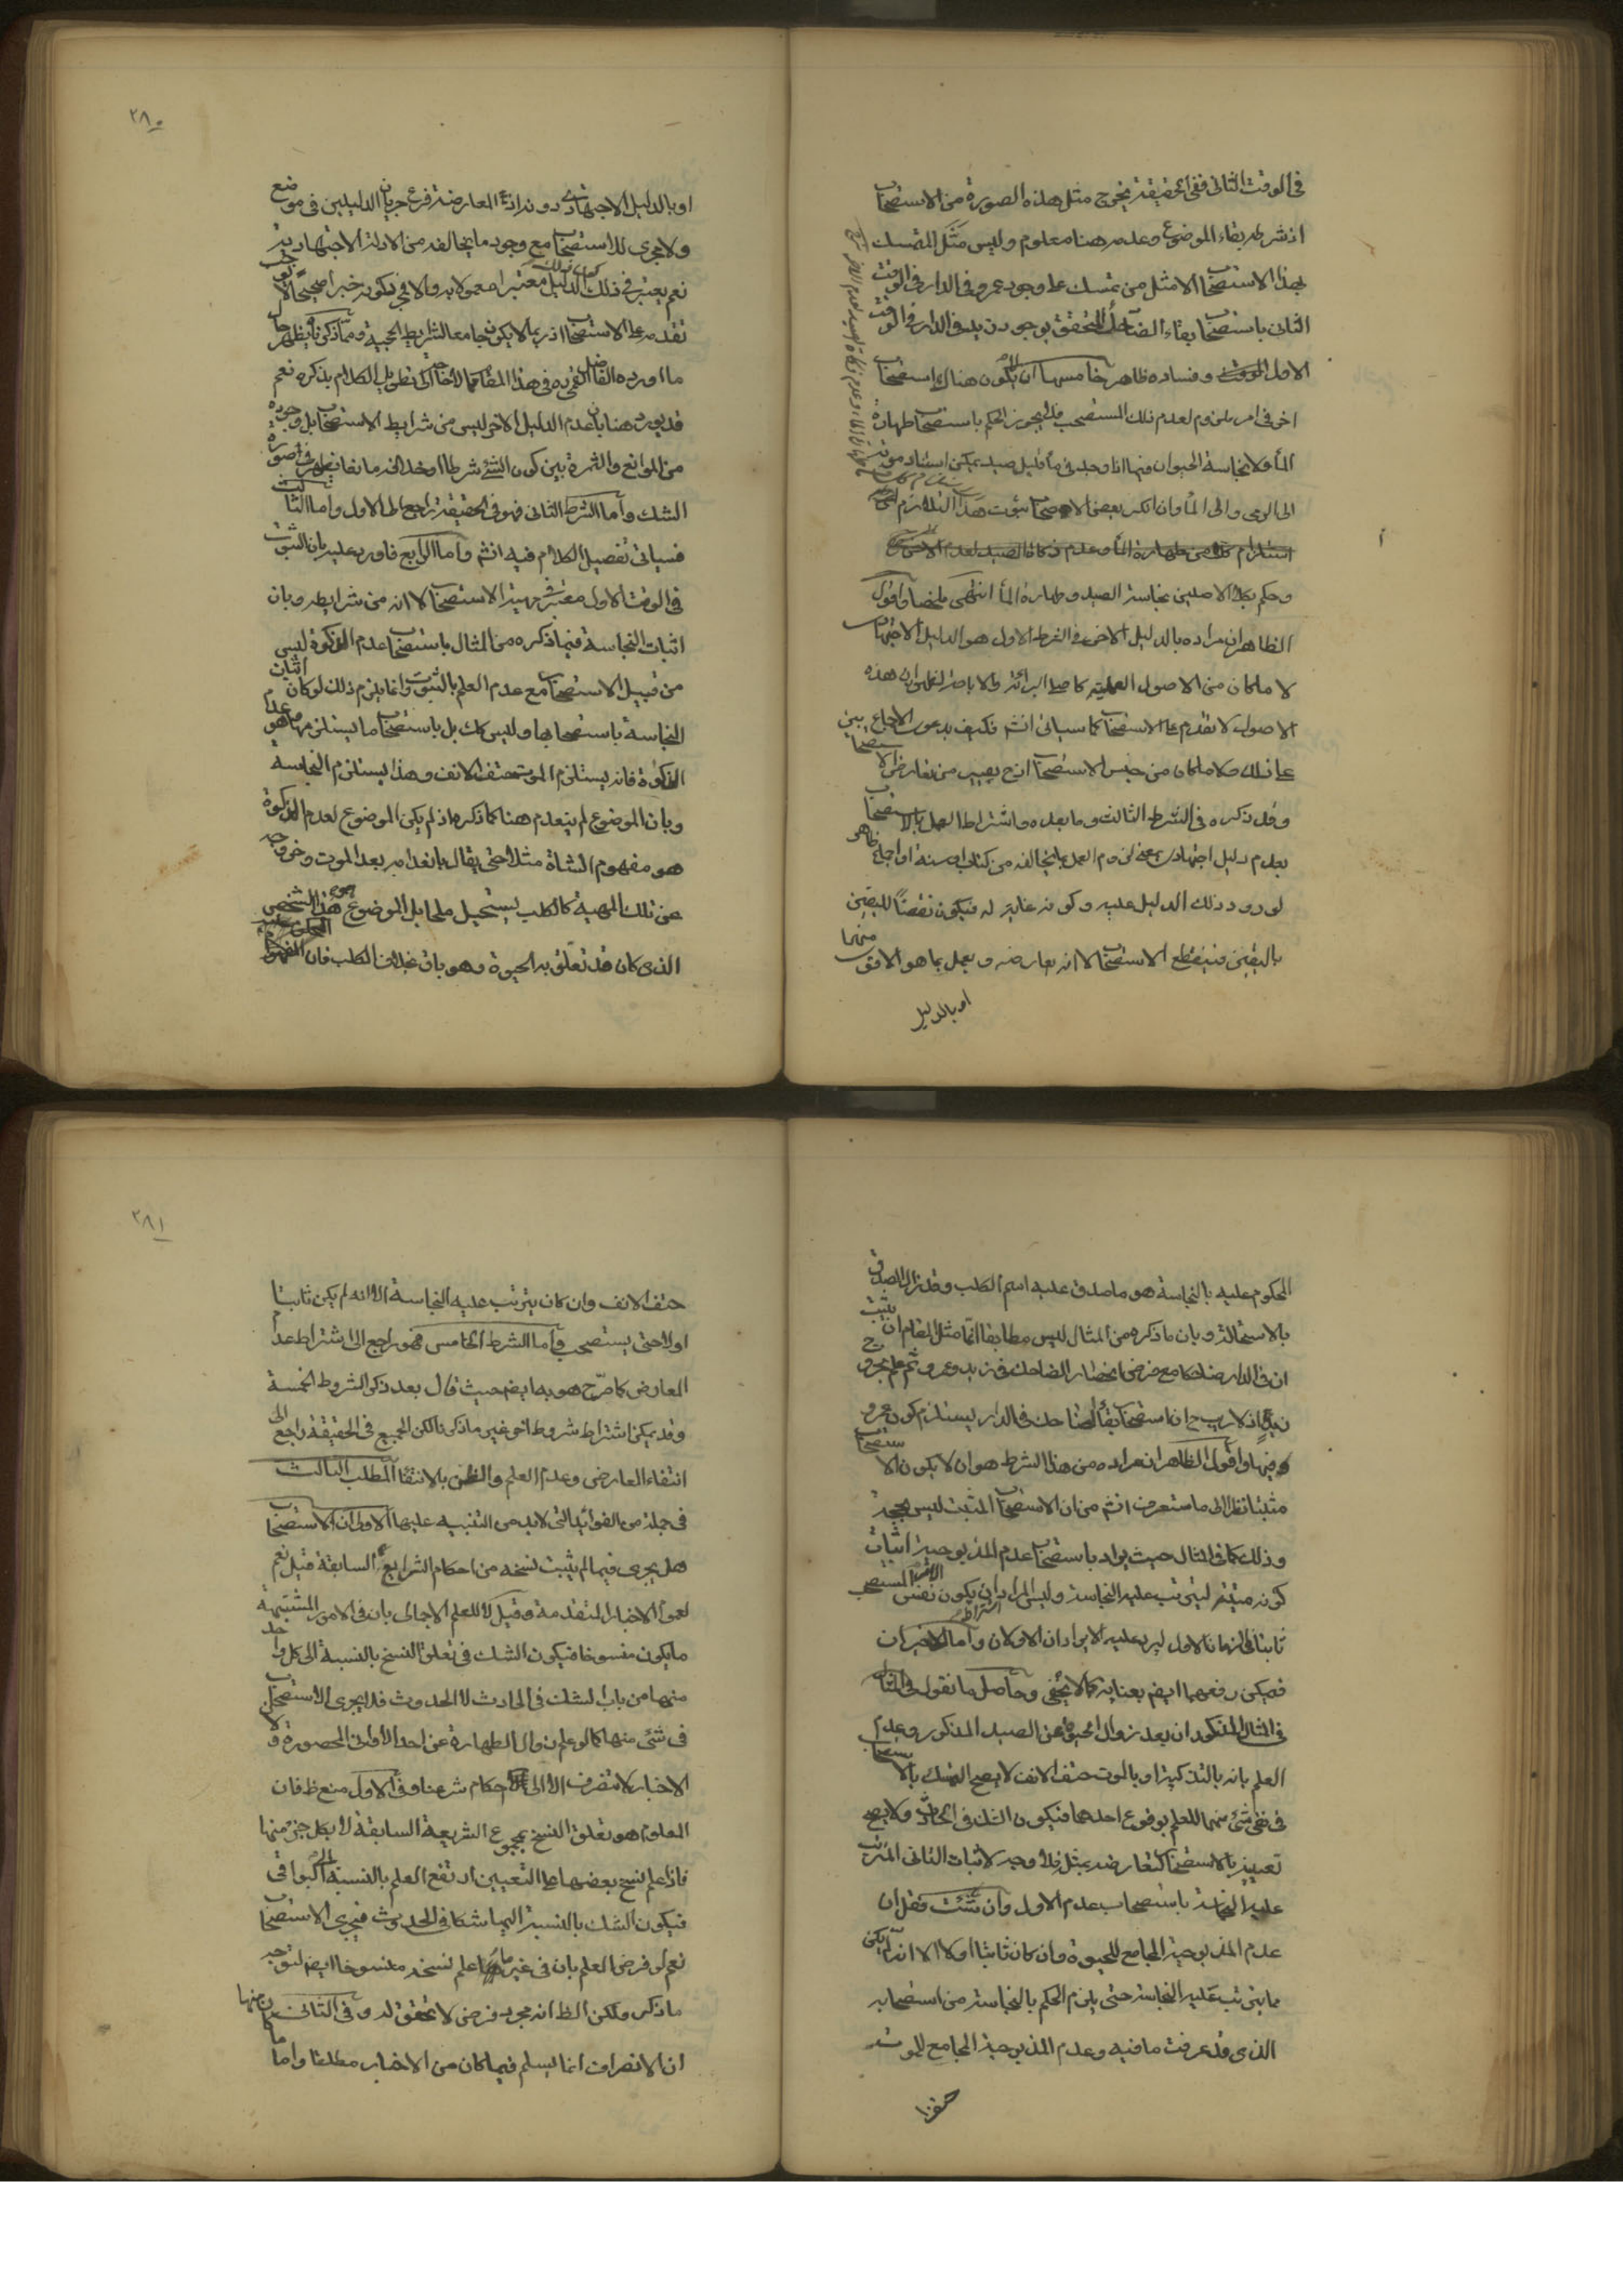 في الوقت الثاني ففي الحقيقة يخرج مثل هذه الصورة من الاستصحاب
اذ شرطه بقاء الموضوع وعدمه هنا معلوم وليس مثل المتمسك
بهذا الاستصحاب الا مثل من تمسك على وجود عمرو في الدار في الوقت
الثاني باستصحاب بقاء الضاحك المتحقق بوجود زيد في الدار في الوقت
الاول وفساده ظاهر خامسها ان لا يكون هناك استصحاب
اخر في امر ملزوم لعدم ذلك المستصحب فلا يجوز الحكم باستصحاب طهارة
الماء ولا نجاسة الحيوان فيما اذا وجد في ماء قليل صيد يمكن استناد موته
الى الرمي والى الماء وان انكر بعض الاصحاب ثبوت هذا التلازم
وحكم بكلا الاصلين بنجاسة الصيد وطهارة الماء انتهى ملخصا واقول
الظاهر ان مراده بالدليل الاخر في الشرط الاول هو الدليل الاجتهادي
لا ما كان من الاصول العملية كاصل البرائة والاباحة لظهور ان هذه
الاصول لا تقدم على الاستصحاب كما سيأتي انشم فكيف يدعون الاجماع
على ذلك ولا ما كان من جنس الاستصحاب اذ ح يصير من تعارض الاستصحاب
وقد ذكره في الشرط الثالث وما بعده واشتراط العمل بالاستصحاب
بعدم دليل اجتهادي بمعنى لزوم العمل بما يخالفه من كتاب او سنة او اجماع ظاهر
لورود ذلك الدليل عليه وكونه غاية له فيكون نقضا لليقين
باليقين فينقطع الاستصحاب لا انه يعارضه ويعمل بما هو الاقوى منهما
او بالدليل
٢٨٠
او بالدليل الاجتهادي دونه اذ المعارضة فرع جريان الدليلين في موضع
ولا مجرى للاستصحاب مع وجود ما يخالفه من الادلة الاجتهادية
نعم يعتبر في ذلك الدليل كونه معتبرا معمولا به
تقدمه على الاستصحاب اذ ربما لا يكون جامعا لشرايط الحجية ومما ذكرنا يظهر حال
ما اورده الفاضل القمي ره في هذا المقام لا حاجة الى تطويل الكلام بذكره نعم
قد يورد هنا بان عدم الدليل الاخر ليس من شرايط الاستصحاب بل وجوده
من الموانع والثمرة بين كون الشيء شرطا او ضده مانعا يظهر في صورة
الشك واما الشرط الثاني فهو في الحقيقة راجع الى الاول واما الثالث
فسيأتي تفصيل الكلام فيه انشم واما الرابع فاورد عليه بان الثبوت
في الوقت الاول معتبر في مهية الاستصحاب لا انه من شرايطه وبان
اثبات النجاسة فيما ذكره من المثال باستصحاب عدم المذكورة ليس
من قبيل الاستصحاب مع عدم العلم بالثبوت وانما يلزم ذلك لو كان اثبات
النجاسة باستصحابها وليس كك بل باستصحاب ما يستلزمها وهو عدم
الذكوة فانه يستلزم الموت حتف الانف وهذا يستلزم النجاسة
وبان الموضوع لم ينعدم هنا كما ذكره اذ لم يكن الموضوع لعدم الذكوة
هو مفهوم الشاة مثلا حتى يقال بانعدامه بعد الموت وخروجه
عن تلك المهية كالكلب يستحيل ملحا بل الموضوع هو هذا الشخص
الذي كان قد تعلق به الحيوة وهو باق بخلاف الكلب فان
المحكوم عليه بالنجاسة هو ما صدق عليه اسم الكلب وقد زال الصدق
بالاستحالة وبان ما ذكره من المثال ليس مطابقا انما مثل المقام ان يثبت
ان في الدار ضاحكا مع فرض انحصار الضاحك في زيد وعمرو ثم علم بخروج
زيد اذ لا ريب ح ان استصحاب بقاء الضاحك في الدار يستلزم كون عمرو
فيها واقول الظاهر ان مراده من هذا الشرط هو ان لا يكون الاستصحاب
مثبتا نظرا الى ما ستعرف انشم من ان الاستصحاب المثبت ليس بحجة
وذلك كما في المثال حيث يراد باستصحاب عدم المذبوحية اثبات
كونه ميتة ليترتب عليه النجاسة وليس المراد ان يكون نفس المستصحب
ثابتا في الزمان الاول ليرد عليه الايرادان الاولان واما الاخيران
فيمكن رفعهما ايضا بعناية كما لا يخفى وحاصل ما نقول
في المثال المذكور ان بعد زوال الحيوة عن الصيد المذكور وعدم
العلم بانه بالتذكية او بالموت حتف الانف لا يصح التمسك بالاستصحاب
في نفي شيء منهما للعلم بوقوع احدهما فيكون الشك في الحادث ولا يصح
تعيينه بالاستصحاب لتعارضه بمثله فلا وجه لاثبات الثاني المترتب
عليه النجاسة باستصحاب عدم الاول وان شئت فقل ان
عدم المذبوحية المجامع للحيوة وان كان ثابتا اولا الا انه لم يكن
مما يترتب عليه النجاسة حتى يلزم الحكم بالنجاسة من استصحابه
الذي قد عرفت ما فيه وعدم المذبوحية المجامع للموت
حتف الا
٢٨١
حتف الانف وان كان يترتب عليه النجاسة الا انه لم يكن ثابتا
اولا حتى يستصحب واما الشرط الخامس فهو راجع الى اشتراط عدم
المعارض كما صرح هو به ايضا حيث قال بعد ذكر الشروط الخمسة
وقد يمكن اشتراط شروط اخر غير ما ذكرنا لكن الجميع في الحقيقة راجع الى
انتفاء المعارض وعدم العلم والظن بالانتفاء المطلب الثالث
في جملة من الفوائد التي لا بد من التنبيه عليها الاولى ان الاستصحاب
هل يجري فيما لم يثبت نسخه من احكام الشرايع السابقة قيل نعم
لعموم الاخبار المتقدمة وقيل لا للعلم الاجمالي بان في الامور المشتبهة
ما يكون منسوخا فيكون الشك في تعلق النسخ بالنسبة الى كل واحد
منها من باب الشك في الحادث لا الحدوث فلا يجري الاستصحاب
في شيء منها كما لو علم زوال الطهارة عن احد الاواني المحصورة ولان
الاخبار لا تنصرف الا الى احكام شرعنا وفي الاول منع ظ فان
المعلوم هو تعلق النسخ بمجموع الشريعة السابقة لا بكل جزء منها
فاذا علم نسخ بعضها على التعيين ارتفع العلم بالنسبة الى البواقي
فيكون الشك بالنسبة اليها شكا في الحدوث فيجري الاستصحاب
نعم لو فرض العلم بان في غير ما علم نسخه منسوخا ايضا لتوجه
ما ذكر ولكن الظ انه مجرد فرض لا تحقق له وفي الثاني
ان الانصراف انما يسلم فيما كان من الاخبار مطلقا واما ما